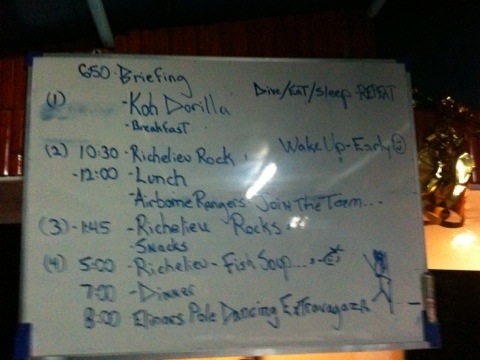 650 Briefing
Dive/Eat/Sleep-REPEAT
(1) -Koh Dorilla
-Breakfast
(2) 10:30 -Richelieu Rock,
Wake Up-Early
-12:00 -Lunch
-Airborne Rangers Join The Team...
(3) -1:45 -Richelieu Rocks.
-Snacks
(4) 5:00 -Richelieu-Fish Soup...
7:00 -Dinner
8:00 Elinors Pole Dancing Extravagaza